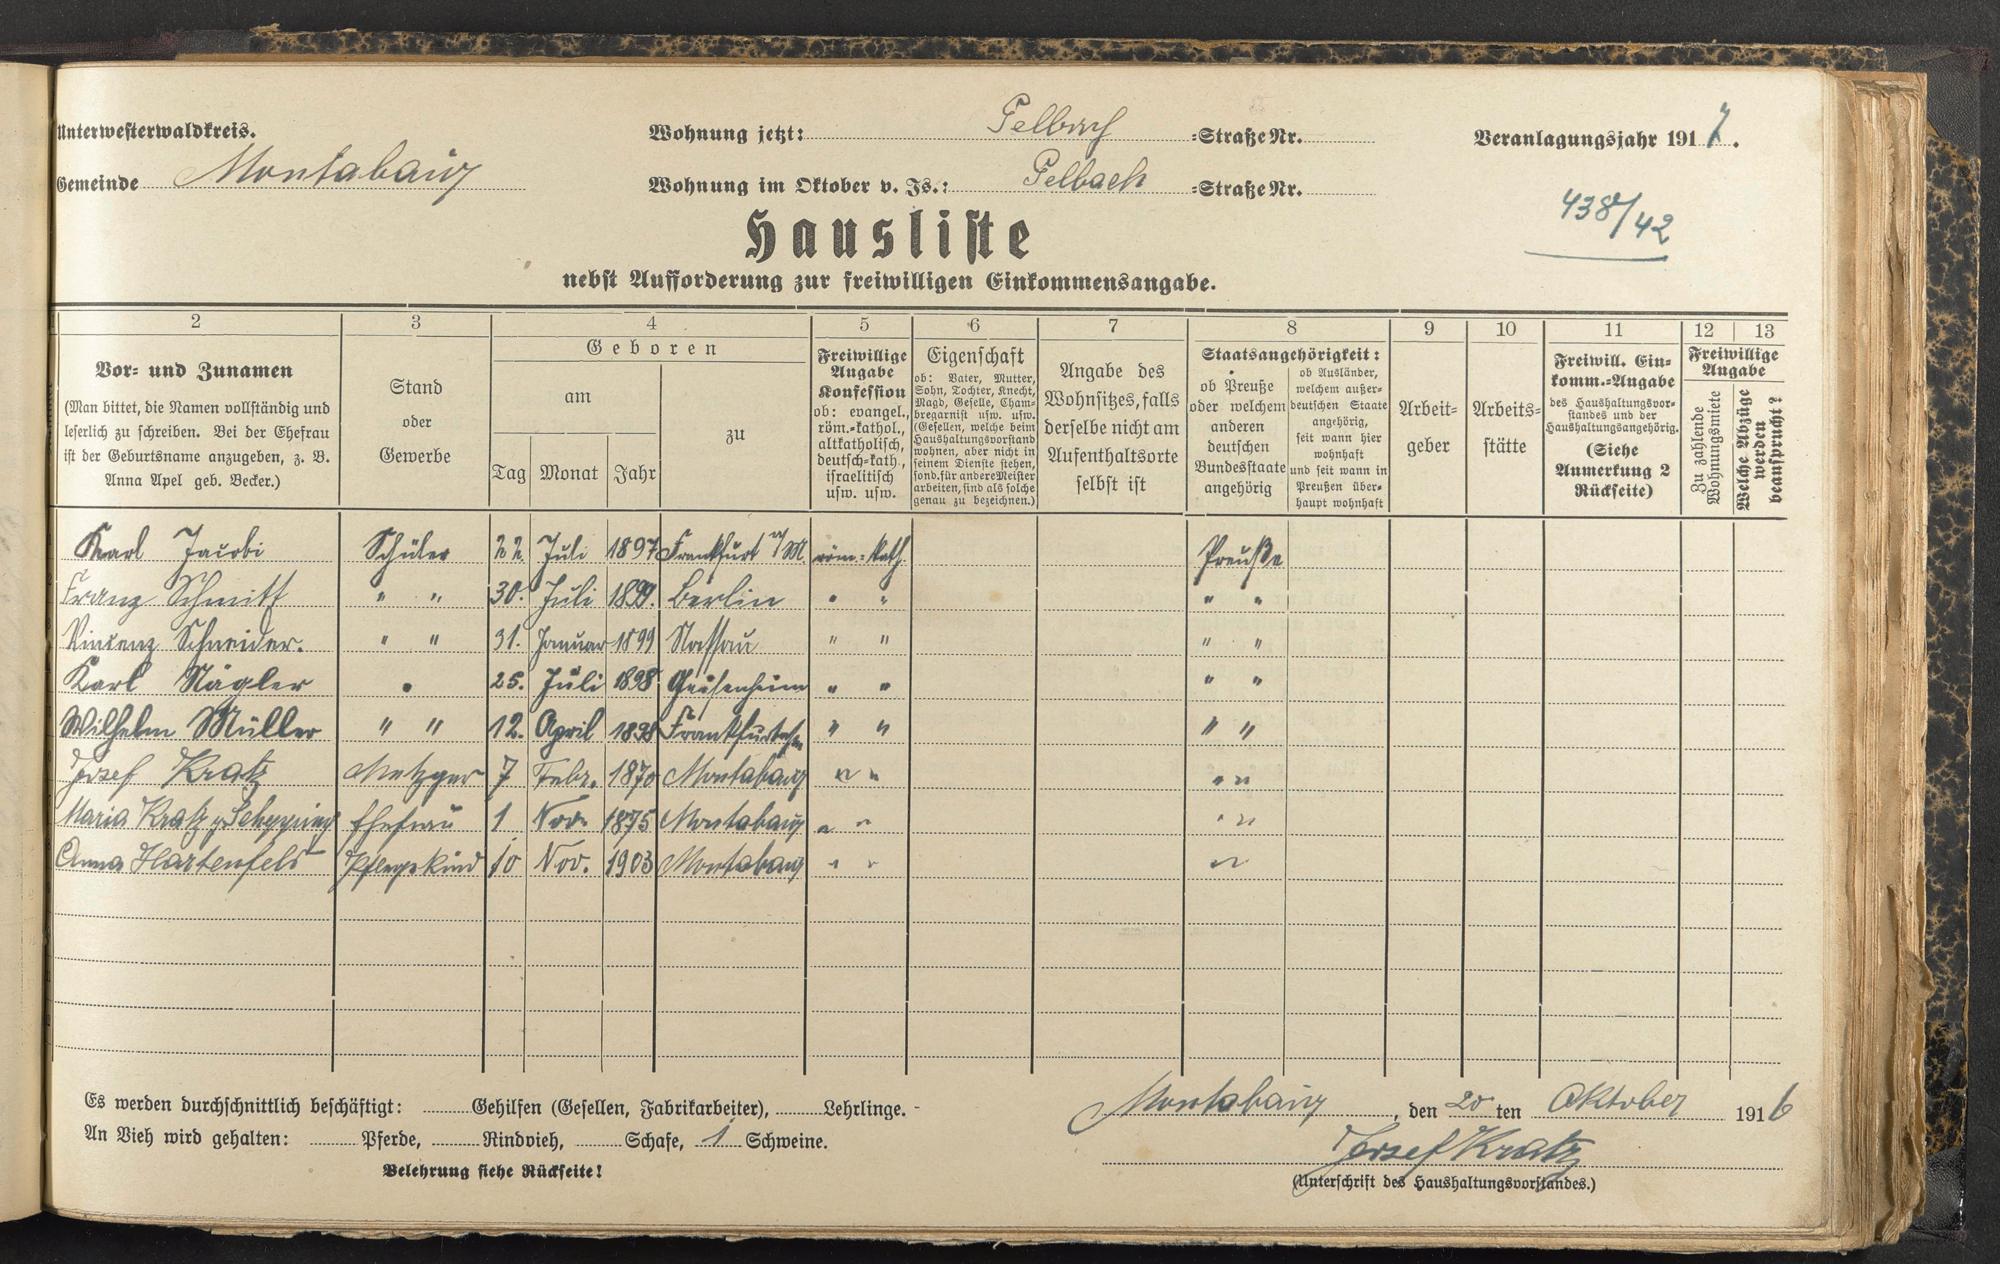 Unterwesterwaldkreis.
Wohnung jetzt: Gelbach -Straße Nr.
Veranlagungsjahr 1917.
Gemeinde Montabaur
Wohnung im Oktober v. Js.: Gelbach -Straße Nr.
438/42
Hausliste
nebst Aufforderung zur freiwilligen Einkommensangabe.
2 3 4 5 6 7 8 9 10 11 12 13
Vor- und Zunamen
(Man bittet, die Namen vollständig und
leserlich zu schreiben. Bei der Ehefrau
ist der Geburtsname anzugeben, z. B.
Anna Apel geb. Becker.)
Stand
oder
Gewerbe
Geboren
am
Tag Monat Jahr
zu
Freiwillige
Angabe
Konfession
ob: evangel.,
röm.-kathol.,
altkatholisch,
deutsch-kath.,
israelitisch
usw. usw.
Eigenschaft
ob: Vater, Mutter,
Sohn, Tochter, Knecht,
Magd, Geselle, Cham-
bregarnist usw. usw.
(Gesellen, welche beim
Haushaltungsvorstand
wohnen, aber nicht in
seinem Dienste stehen,
sond. für andere Meister
arbeiten, sind als solche
genau zu bezeichnen.)
Angabe des
Wohnsitzes, falls
derselbe nicht am
Aufenthaltsorte
selbst ist
Staatsangehörigkeit:
ob Preuße
oder welchem
anderen
deutschen
Bundesstaate
angehörig
ob Ausländer,
welchem außer-
deutschen Staate
angehörig,
seit wann hier
wohnhaft
und seit wann in
Preußen über-
haupt wohnhaft
Arbeit-
geber
Arbeits-
stätte
Freiwill. Ein-
komm.-Angabe
des Haushaltungsvor-
standes und der
Haushaltungsangehörig.
(Siehe
Anmerkung 2
Rückseite)
Freiwillige
Angabe
Zu zahlende
Wohnungsmiete
Welche Abzüge
werden
beansprucht?
Karl Jacobi Schüler 22. Juli 1897 Frankfurt a/M. röm.-kath. Preuße
Franz Schmitt " " 30. Juli 1899. Berlin " " " "
Vincenz Schneider. " " 31. Januar 1899 Nassau " " " "
Karl Nägler " 25. Juli 1898 Geisenheim " " " "
Wilhelm Müller " " 12. April 1898 Frankfurt a/M " " " "
Josef Kratz Metzger 7 Febr. 1870 Montabaur " " " "
Maria Kratz g. Schepping Ehefrau 1 Nov. 1875 Montabaur " " " "
Anna Hartenfels Pflegekind 10 Nov. 1903 Montabaur " " "
Es werden durchschnittlich beschäftigt: Gehilfen (Gesellen, Fabrikarbeiter), Lehrlinge.
Montabaur, den 20 ten Oktober 1916
An Vieh wird gehalten: Pferde, Rindvieh, Schafe, 1 Schweine.
Josef Kratz
Belehrung siehe Rückseite!
(Unterschrift des Haushaltungsvorstandes.)